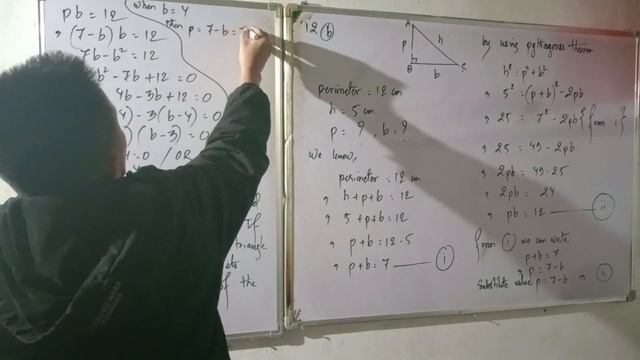 pb = 12
⇒ (7-b) b = 12
7b - b² = 12
b² - 7b + 12 = 0
4b - 3b + 12 = 0
4) - 3(b-4) = 0
) (b-3) = 0
= 0 / OR
If
triangle
of the
when b = 4
then p = 7-b =
12 (b)
A
p
h
B
b
C
perimeter = 12 cm
h = 5 cm
p = ? , b = ?
We know,
perimeter = 12 cm
⇒ h+p+b = 12
⇒ 5+p+b = 12
⇒ p+b = 12-5
⇒ p+b = 7 —— (i)
by using pythagoras theorem
h² = p² + b²
⇒ 5² = (p+b)² - 2pb
⇒ 25 = 7² - 2pb { from i }
⇒ 25 = 49 - 2pb
⇒ 2pb = 49-25
⇒ 2pb = 24
⇒ pb = 12 —— (ii)
from (i) we can write
p+b = 7
⇒ p = 7-b
Substitute value p = 7-b